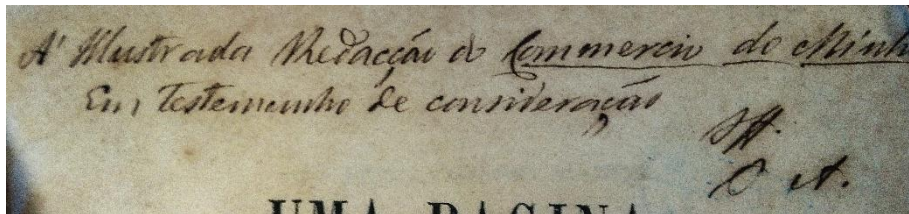 A' Illustrada Redacção do Commercio do Minho
Em testemunho de consideração
Off.
O A.
UMA PAGINA